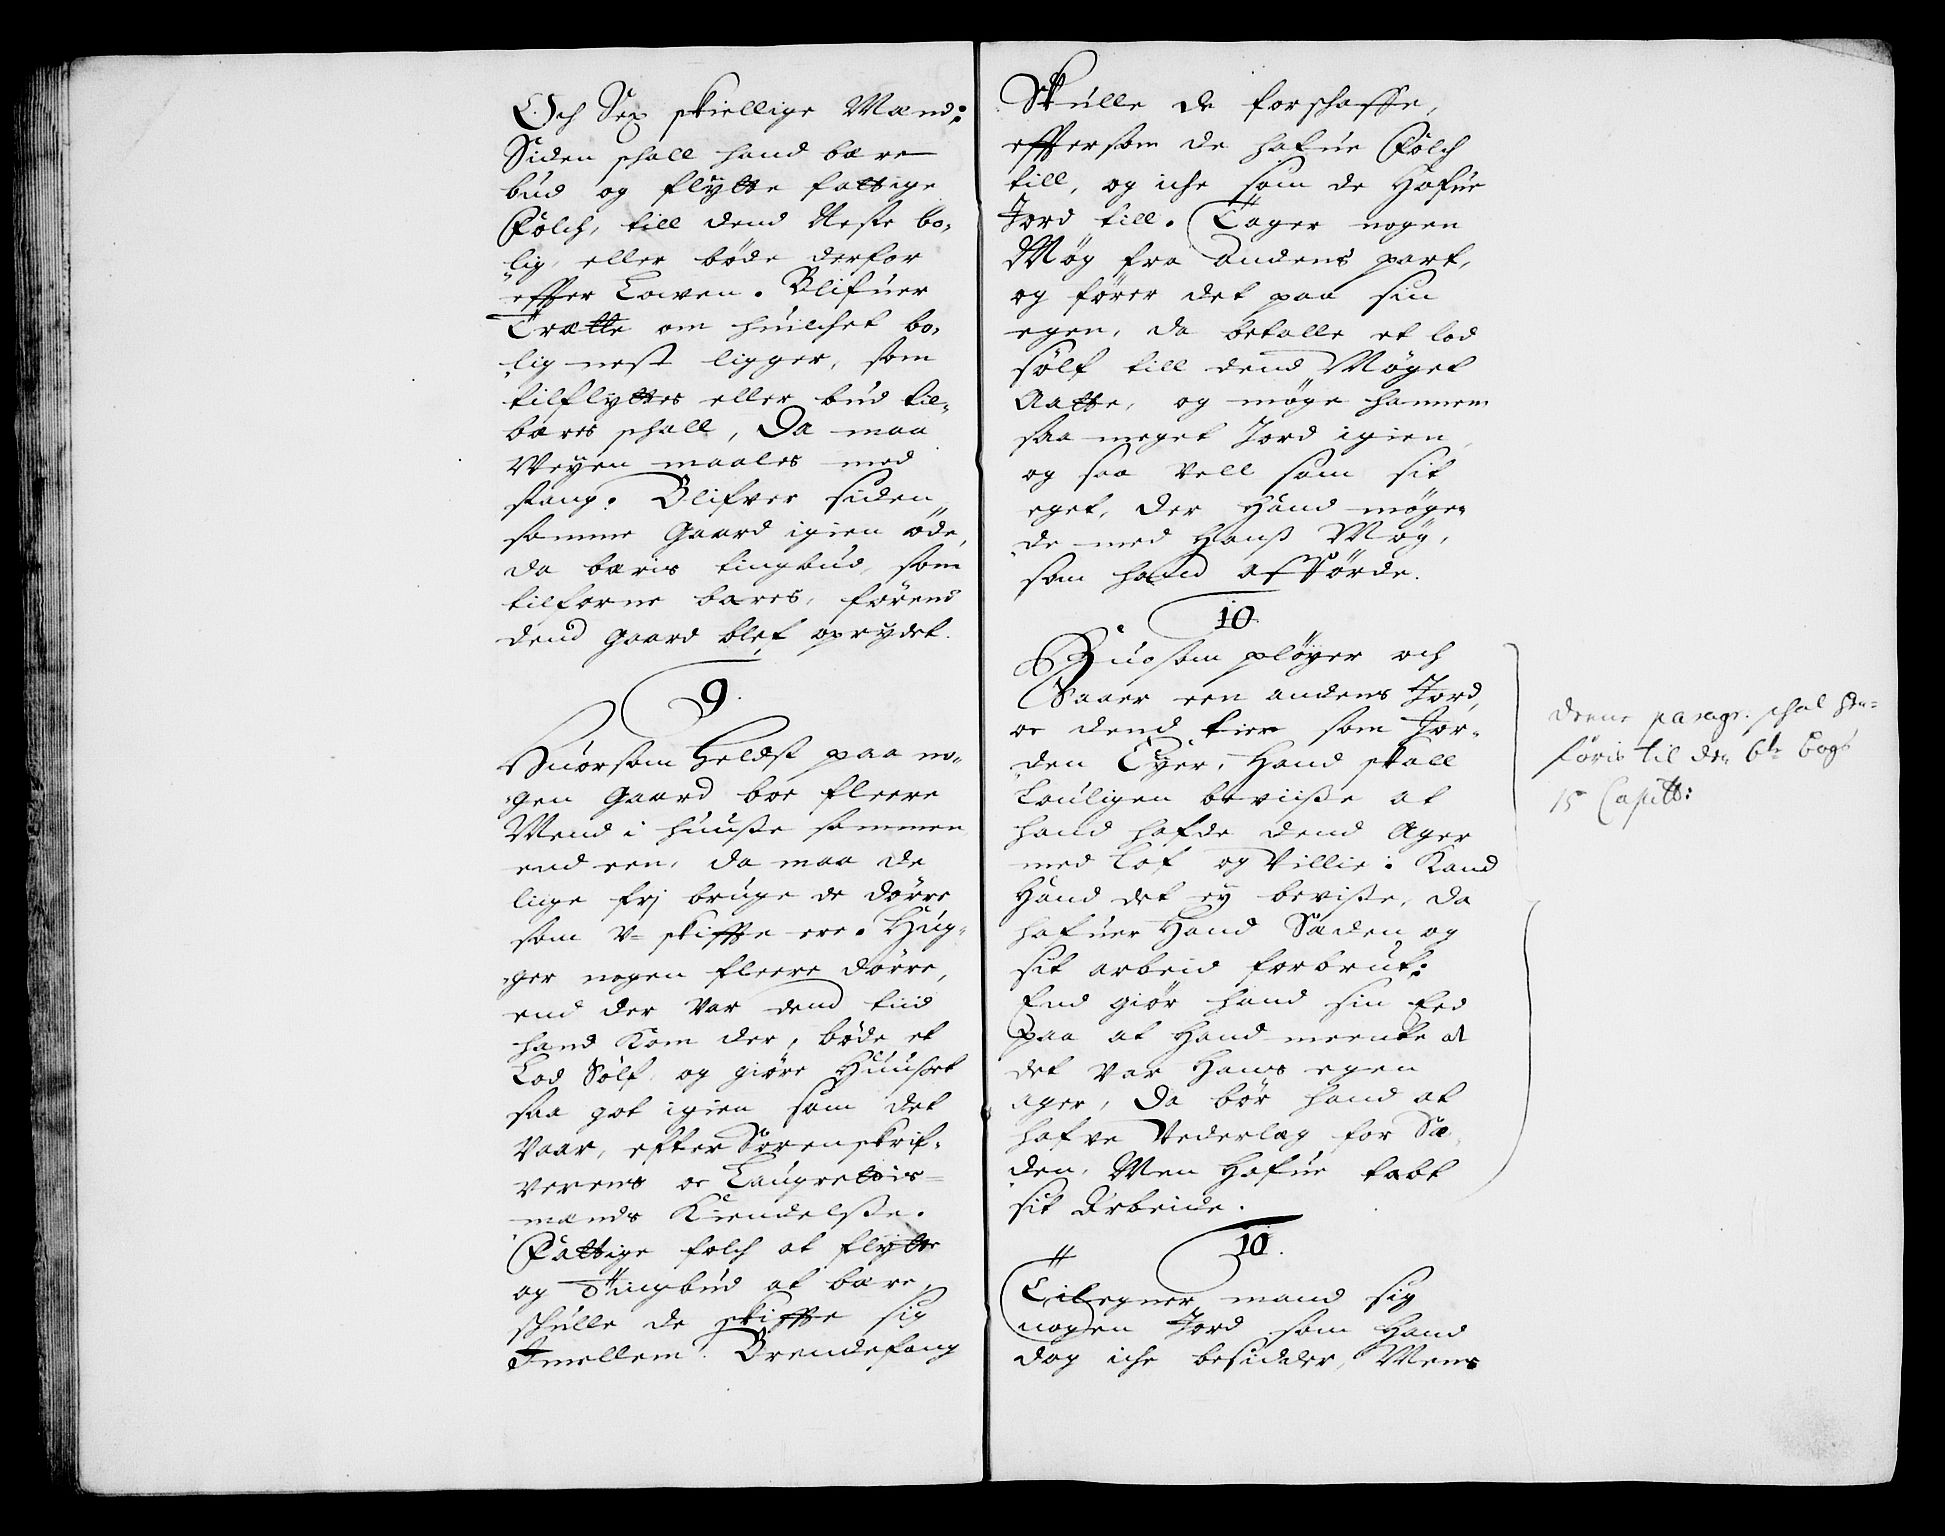 Och Sex skiellige Mænd:
Siden schall hand bære
bud og flytte fattige
Folch, till dend Neste bo-
lig, eller bøde derfor
effter Lowen. Blifuer
Trætte om huilchet bo-
lig nest ligger, som
tilflyttes eller bud til-
bæres schall, Da maa
Veyen maales med
stang. Blifver siden
samme Gaard igien øde,
da bæris tingbud, som
tilforne bæres, førend
dend Gaard blef oprydet.
9.
Huorsom Heldst paa no-
gen Gaard boe fleere
Mend i huusse sammen
end een, da maa de
liige frj bruge de dørre
som V-skiffte ere. Hug-
ger nogen fleere dørre,
end der Var dend tiid
hand Kom der, bøde et
Lod Sølf, og giøre Huuset
saa got igien som det
Vaar, efter Sorenskrif-
verens oc Laugrettis-
mænds Kiendelsse.
Fattige folch at flytte
og Tingbud at bære,
schulle de skiffte sig
Imellem. Brendefang
Skulle de forschaffe,
efftersom de hafue Folch
till, og iche som de Hafue
Jord till. Tager nogen
Møg fra andens part,
og fører det paa sin
egen, da betalle et lod
sølf till dend Møget
Aatte, og møge hannem
saa meget Jord igien,
og saa vell som sit
eget, der Hand møge-
de med Hanss Møg,
som hand affførde.
10.
Huosom pløyer och
Saaer een andens Jord,
oc dend tiere som Jor-
den Eyer, Hand skall
Louligen beviisse at
hand hafde dend Ager
med Lof og Villie: Kand
Hand det ey bevisse, da
hafuer Hand Sæden og
sit arbeid forbrut:
End giør hand sin Eed
paa at Hand meente at
det Var Hans egen
ager, Da bør hand at
hafve Vederlag for Sæ-
den, Men Hafue tabt
sit Arbeide.
denne paragr. schal hen-
føris til den 6te bogs
15 Capitt:
10.
Tilegner mand sig
nogen Jord som Hand
dog iche besidder, Mens